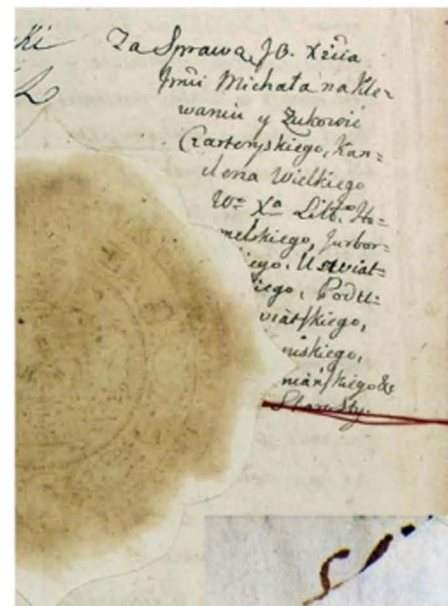 ki
Za Sprawą JO. Xcia
Jmci Michała na Kle-
waniu y Żukowie
Czartoryskiego, Kan-
clerza Wielkiego
W° Xa Litt° Ho-
melskiego, Jurbor-
iego. Uswiat-
iego, Podu-
wiatskiego,
niskiego,
mańskiego &
Starosty.